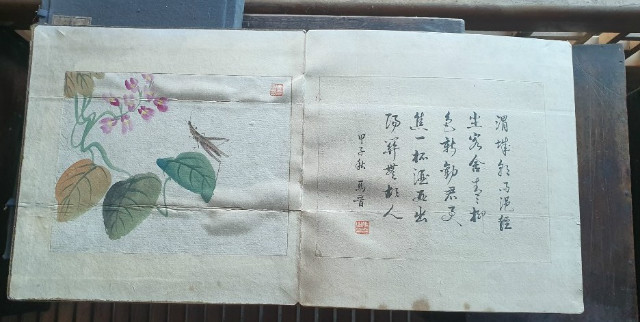 渭城朝雨浥輕
尘客舍青々柳
色新勸君更
一杯酒西出
陽關無故人
甲子秋 馬晉